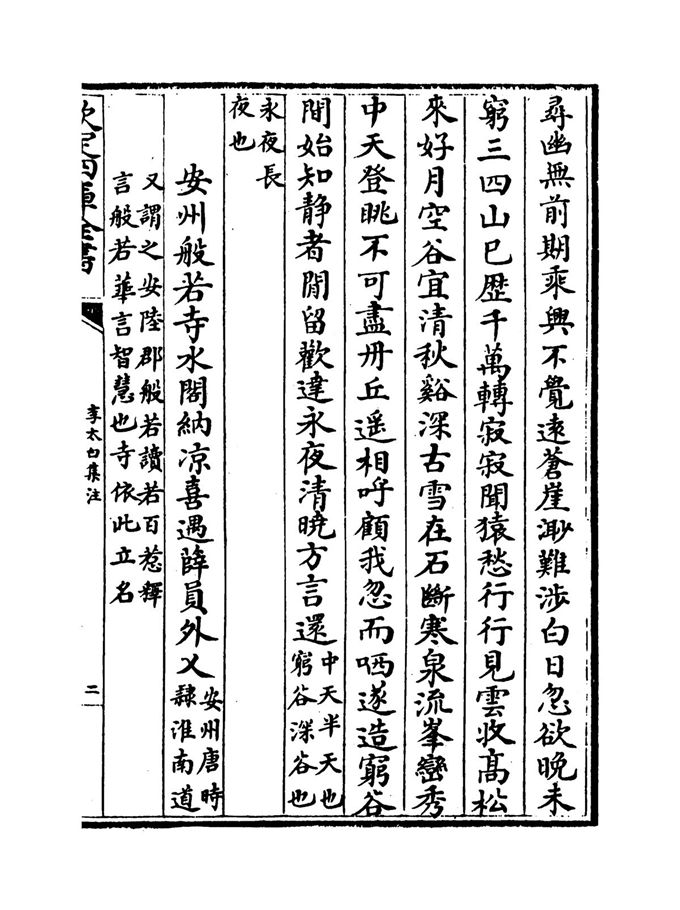 尋幽無前期乘興不覺遠蒼崖渺難涉白日忽欲晚未
窮三四山已歴千萬轉寂寂聞猿愁行行見雲收髙松
來好月空谷宜清秋谿深古雪在石斷寒泉流峯巒秀
中天登眺不可盡丹丘遥相呼顧我忽而哂遂造窮谷
間始知静者閒留歡達永夜清曉方言還中天半天也
窮谷深谷也
永夜長
夜也
安州般若寺水閣納凉喜遇薛員外乂安州唐時
隸淮南道
又謂之安陸郡般若讀若百惹釋
言般若華言智慧也寺依此立名
欽定四庫全書
李太白集注
二